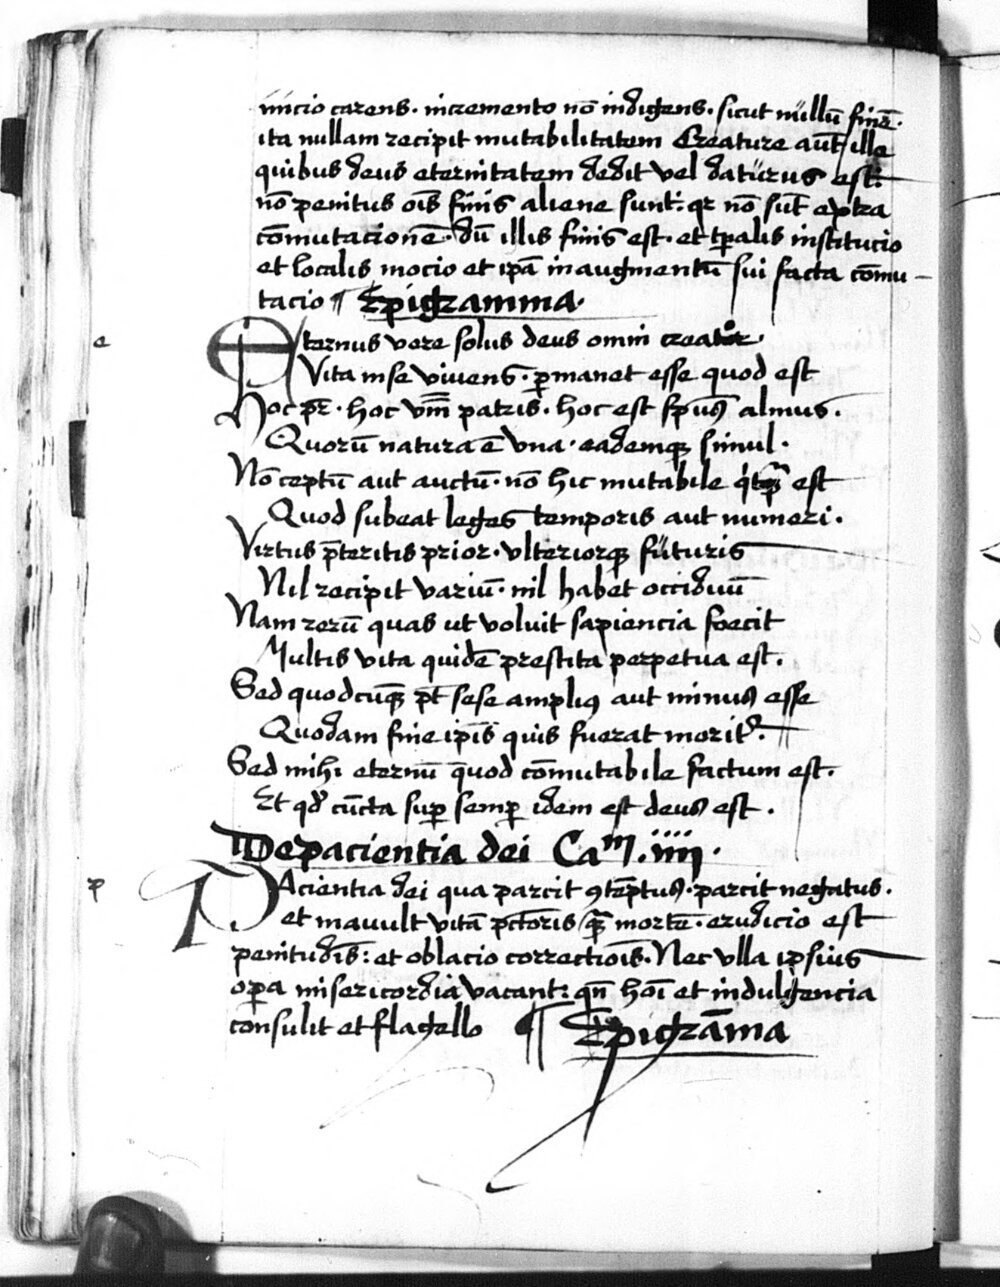 inicio carens. incremento nō indigens. sicut nullū finē.
ita nullam recipit mutabilitatem Creature aūt ille
quibus deus eternitatem dedit vel daturus est:
nō penitus oīs finis aliene sunt: qr nō sūt extra
cōmutacionē. dū illis finis est. et tpalis institucio
et localis mocio et ipā in augmentū sui facta cōmu-
tacio ¶ Epigramma.
e
Eternus vere solus deus omni creator.
Vita in se vivens. pmanet esse quod est
Hoc pr̄. hoc vm̄ patris. hoc est spūs almus.
Quorū natura ē vna. eademq simul.
Nō ceptū aut auctū. nō hic mutabile est
Quod subeat leges temporis aut numeri.
Virtus pteritis prior. vlteriorq futuris
Nil recipit variū. nil habet occiduū
Nam rerū quas ut voluit sapiencia foecit
Multis vita quidē prestita perpetua est.
Sed quodcūq pt sese amplius aut minus esse
Quodam fine ipīs quis fuerat moritr.
Sed mihi eternū quod cōmutabile factum est.
Et qd cūcta sup semp idem est deus est.
De paciencia dei Cam. iiii.
p
PAcientia dei qua parcit 9tēptus. parcit negatus.
et mavult vitā pctoris qm̄ mortē. erudicio est
penitudīs: et oblacio correctiois. Nec vlla ipsius
opa misericordia vacant: qn̄ hoī et indulgencia
consulit et flagello ¶ Epigrāma